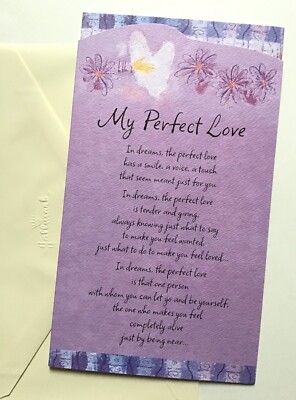 My Perfect Love
In dreams, the perfect love
has a smile, a voice, a touch
that seem meant just for you.
In dreams, the perfect love
is tender and giving,
always knowing just what to say
to make you feel wanted,
just what to do to make you feel loved...
In dreams, the perfect love
is that one person
with whom you can let go and be yourself,
the one who makes you feel
completely alive
just by being near...
Hallmark